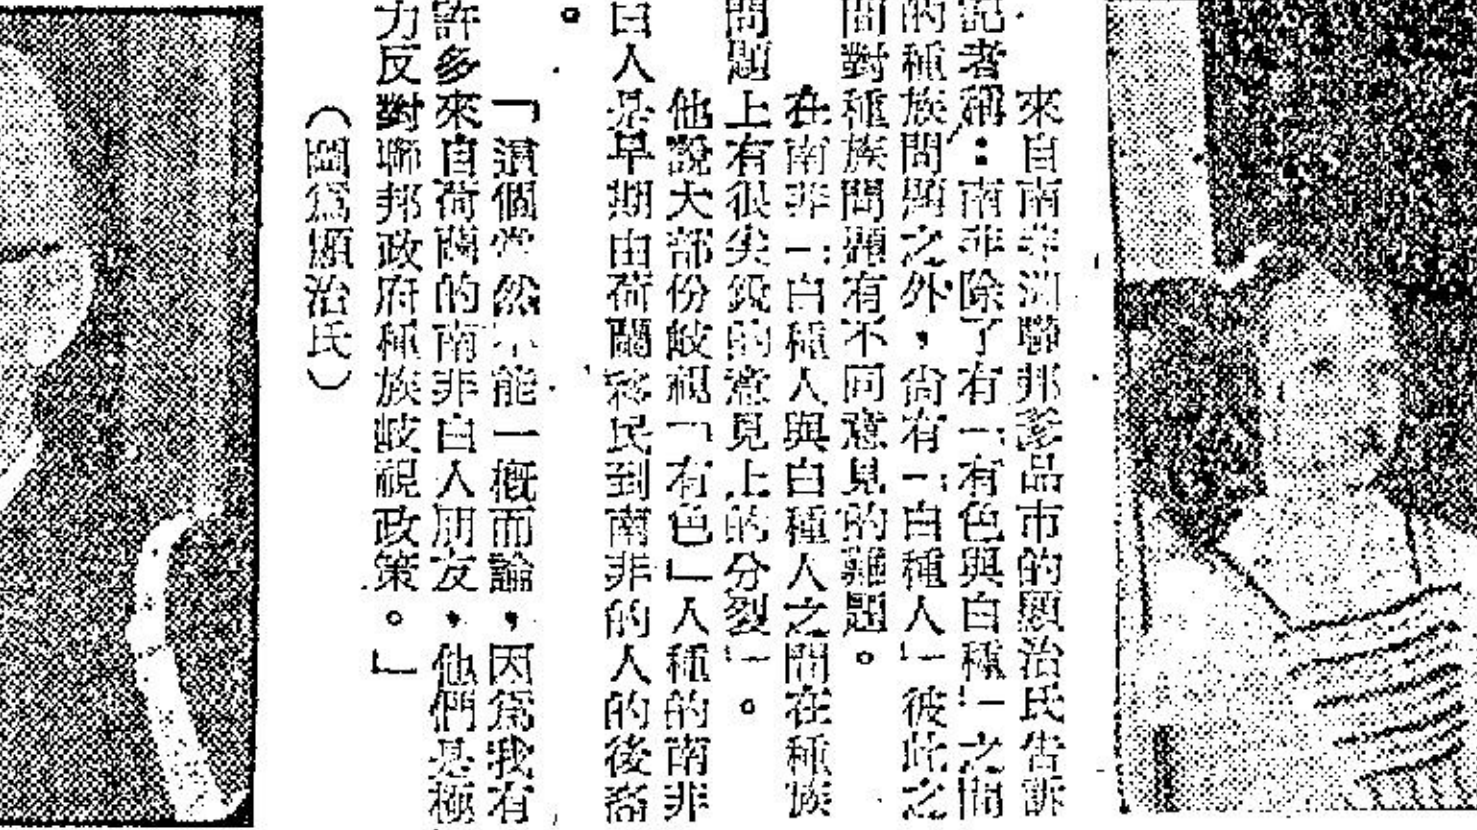 來自南非洲聯邦爹品市的顧治氏告訴
記者稱：南非除了有「有色與白種」之間
的種族問題之外，尚有「白種人」彼此之
間對種族問題有不同意見的難題。
在南非「白種人與白種人之間在種族
問題上有很尖銳的意見上的分裂」。
他說大部份歧視「有色」人種的南非
白人是早期由荷蘭移民到南非的人的後裔
。
「這個當然不能一概而論，因為我有
許多來自荷蘭的南非白人朋友，他們是極
力反對聯邦政府種族歧視政策。」
（圖為顧治氏）